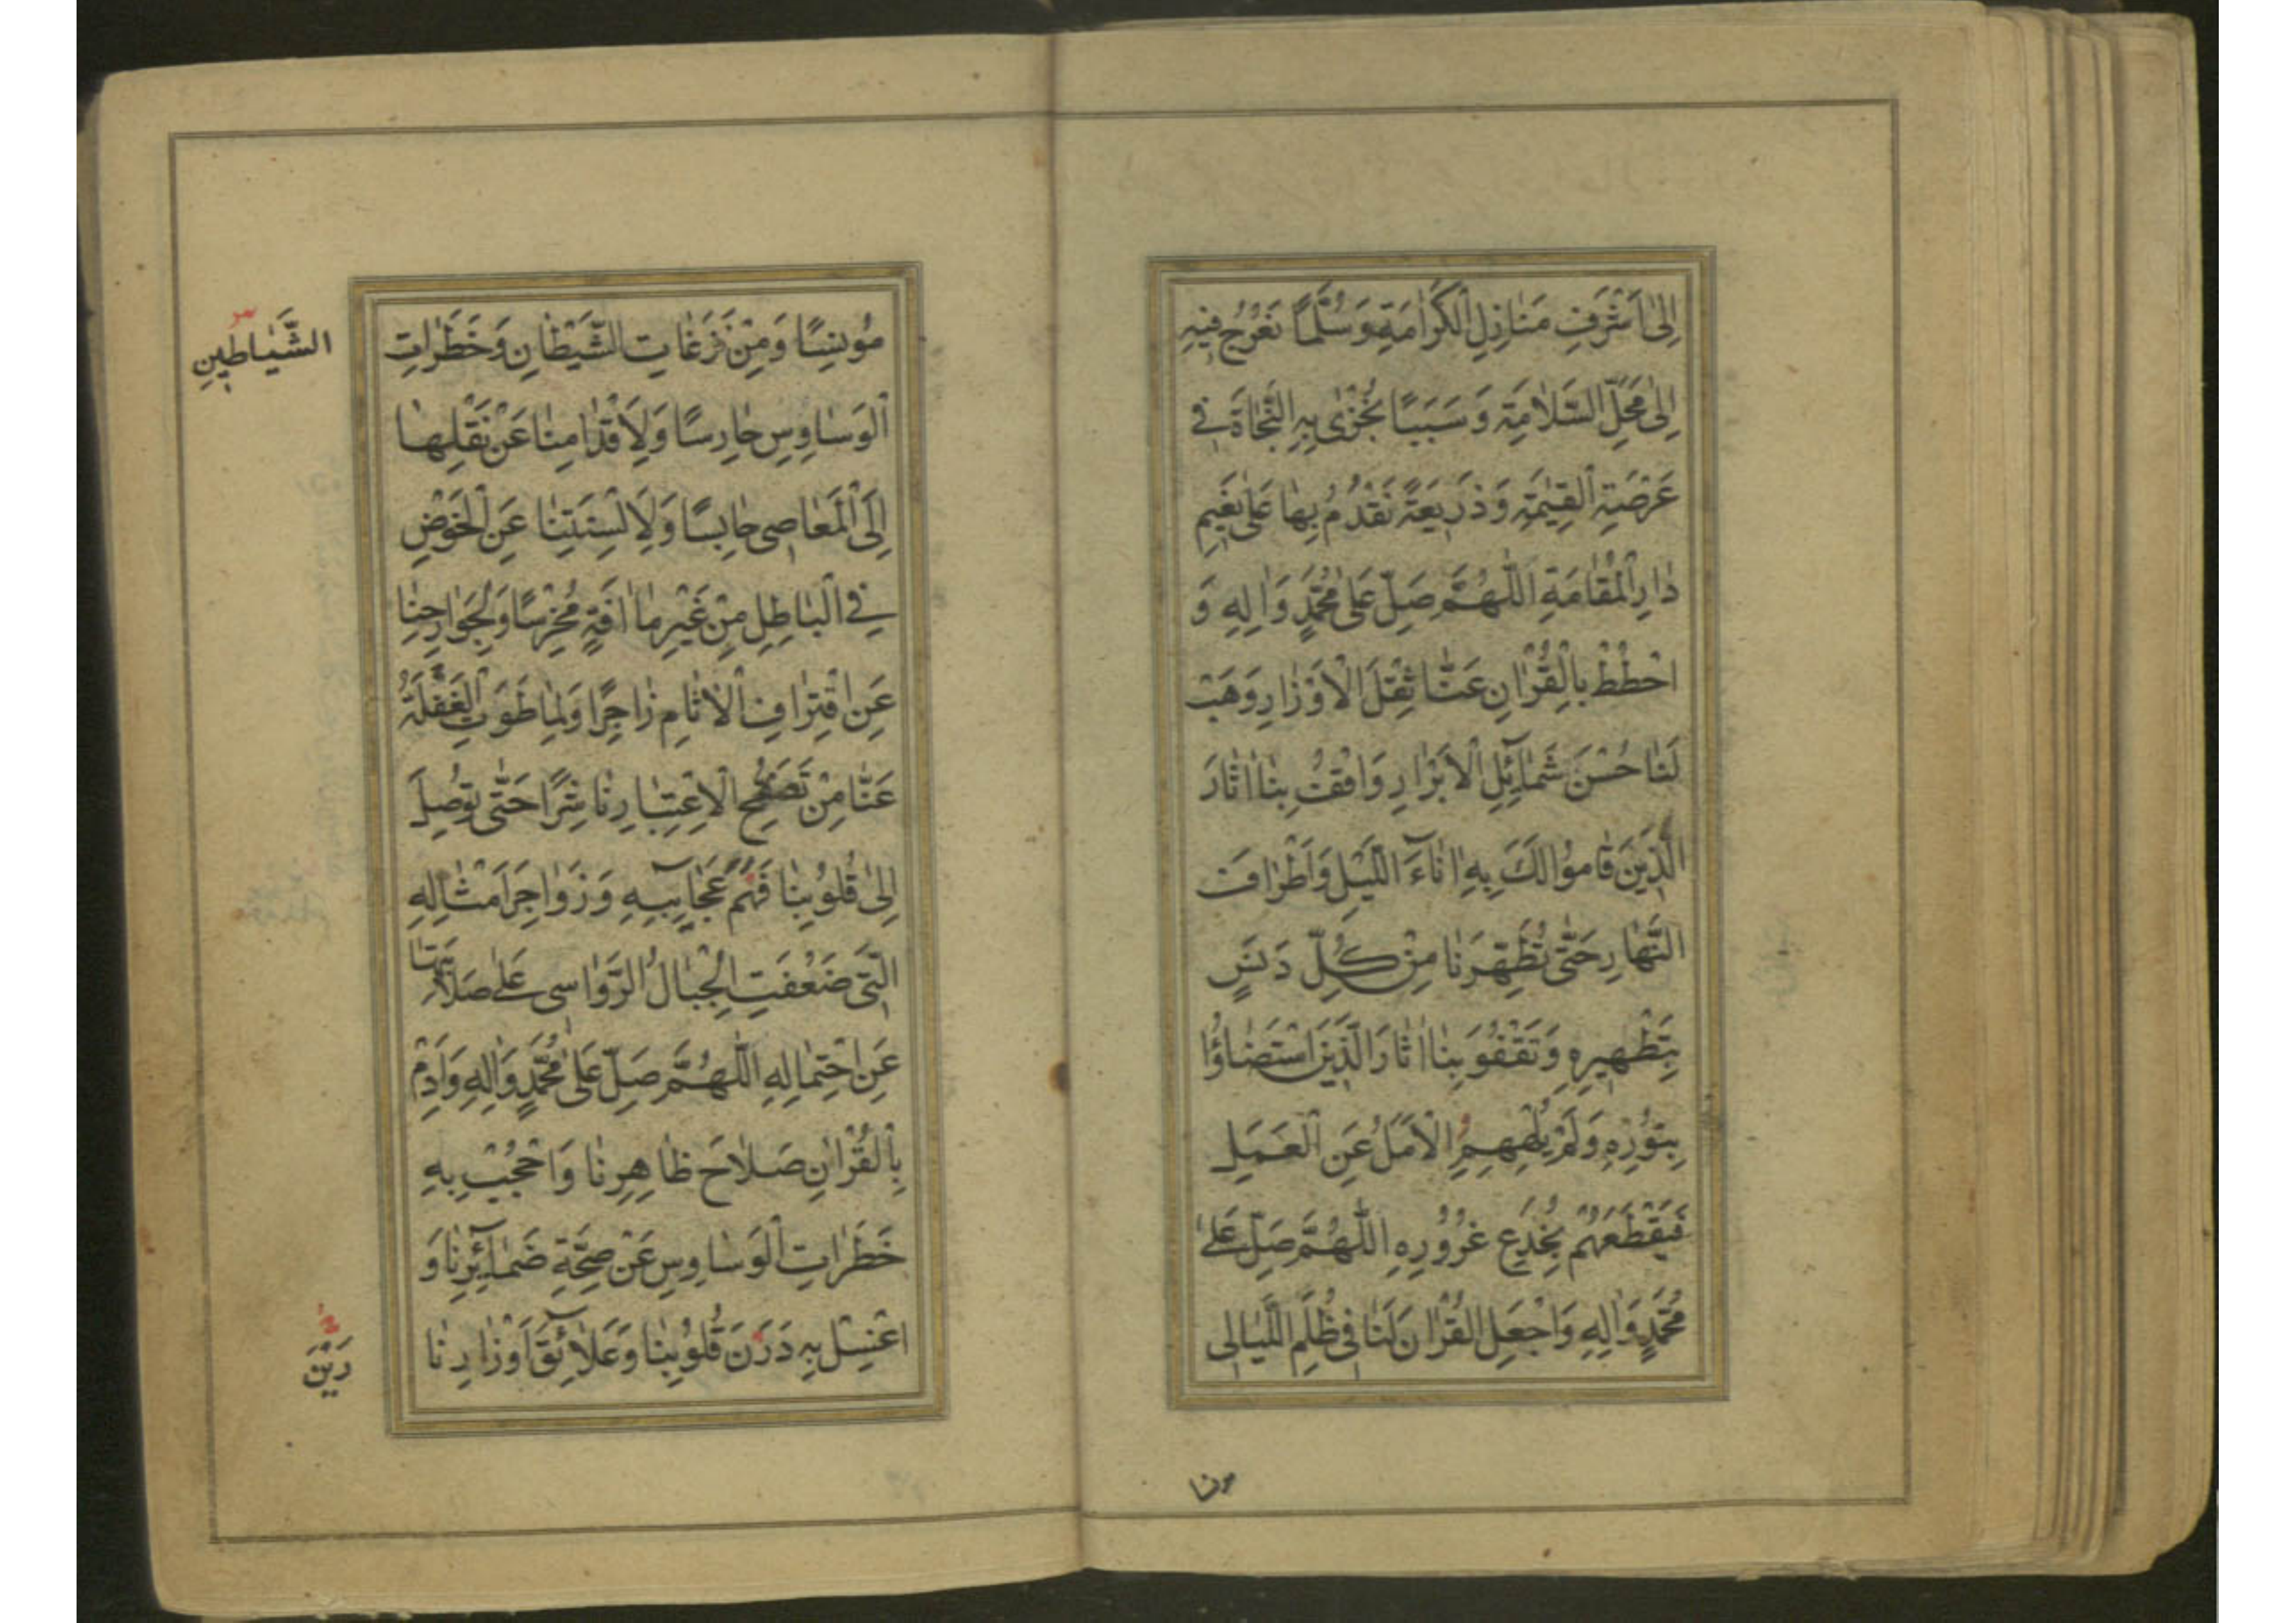 اِلٰى اَشْرَفِ مَنٰازِلِ الْكَرٰامَةِ وَسُلَّمًا نَعْرُجُ فِيهِ
اِلٰى مَحَلِّ السَّلاٰمَةِ وَسَبَبًا نُجْزٰى بِهِ النَّجٰاةَ فِي
عَرْصَةِ الْقِيٰمَةِ وَذَرِيعَةً نَقْدُمُ بِهٰا عَلٰى نَعِيمِ
دٰارِ الْمُقٰامَةِ اَللّٰهُمَّ صَلِّ عَلٰى مُحَمَّدٍ وَاٰلِهِ وَ
احْطُطْ بِالْقُرْاٰنِ عَنّٰا ثِقْلَ الْاَوْزٰارِ وَهَبْ
لَنٰا حُسْنَ شَمٰائِلِ الْاَبْرٰارِ وَاقْفُ بِنٰا اٰثٰارَ
الَّذِينَ قٰامُوا لَكَ بِهِ اٰنٰاءَ اللَّيْلِ وَاَطْرٰافَ
النَّهٰارِ حَتّٰى تُطَهِّرَنٰا مِنْ كُلِّ دَنَسٍ
بِتَطْهِيرِهِ وَتَقْفُوَ بِنٰا اٰثٰارَ الَّذِينَ اسْتَضٰاؤُا
بِنُورِهِ وَلَمْ يُلْهِهِمُ الْاَمَلُ عَنِ الْعَمَلِ
فَيَقْطَعَهُمْ بِخُدَعِ غُرُورِهِ اَللّٰهُمَّ صَلِّ عَلٰى
مُحَمَّدٍ وَاٰلِهِ وَاجْعَلِ الْقُرْاٰنَ لَنٰا فِي ظُلَمِ اللَّيٰالِي
مونسا
مُونِسًا وَمِنْ نَزَغٰاتِ الشَّيْطٰانِ وَخَطَرٰاتِ
الشَّيٰاطِينِ
الْوَسٰاوِسِ حٰارِسًا وَلِاَقْدٰامِنٰا عَنْ نَقْلِهٰا
اِلَى الْمَعٰاصِي حٰابِسًا وَلِاَلْسِنَتِنٰا عَنِ الْخَوْضِ
فِي الْبٰاطِلِ مِنْ غَيْرِ مٰا اٰفَةٍ مُخْرِسًا وَلِجَوٰارِحِنٰا
عَنِ اقْتِرٰافِ الْاٰثٰامِ زٰاجِرًا وَلِمٰا طَوَتِ الْغَفْلَةُ
عَنّٰا مِنْ تَصَفُّحِ الْاِعْتِبٰارِ نٰاشِرًا حَتّٰى تُوصِلَ
اِلٰى قُلُوبِنٰا فَهْمَ عَجٰايِبِهِ وَزَوٰاجِرَ اَمْثٰالِهِ
الَّتِي ضَعُفَتِ الْجِبٰالُ الرَّوٰاسِي عَلٰى صَلاٰبَتِهٰا
عَنِ احْتِمٰالِهِ اَللّٰهُمَّ صَلِّ عَلٰى مُحَمَّدٍ وَاٰلِهِ وَاَدِمْ
بِالْقُرْاٰنِ صَلاٰحَ ظٰاهِرِنٰا وَاحْجُبْ بِهِ
خَطَرٰاتِ الْوَسٰاوِسِ عَنْ صِحَّةِ ضَمٰائِرِنٰا وَ
اغْسِلْ بِهِ دَرَنَ قُلُوبِنٰا وَعَلاٰئِقَ اَوْزٰارِنٰا
رَيْنَ